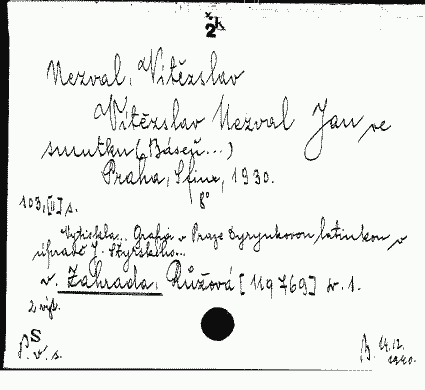 ž k
2
Nezval, Vítězslav
Vítězslav Nezval Jan ve
smutku (Báseň...)
Praha, Sfinx, 1930.
8°
103, [II] s.
Vytiskla... Grafia v Praze Dyrynkovou latinkou v
úpravě J. Štyrského...
v. Zahrada, Růžová [119769] sv. 1.
2 výt.
S
P. v. s.
B. 14.12.
1940.